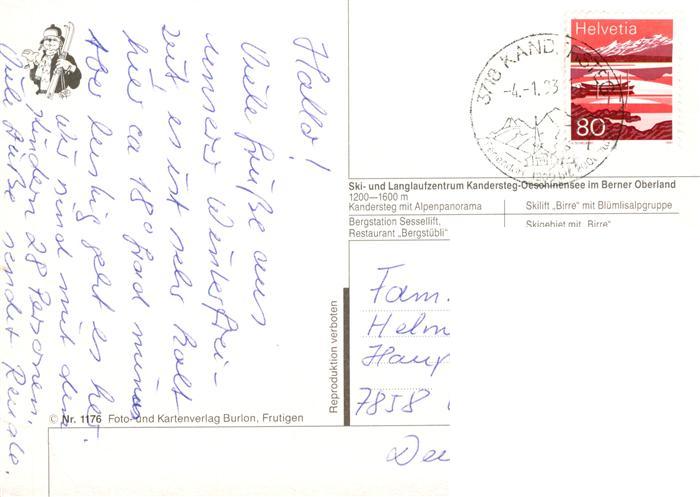 Hallo!
Viele Grüße aus
unserer Winterfrei-
zeit, es ist sehr kalt
hier ca 18 Grad minus
Aber lustig geht es her.
Wir sind mit den
Kindern 28 Personen.
Viele Grüße sendet
Helvetia
80
3718 KANDERSTEG
-4.-1.93
Ski- und Langlaufzentrum Kandersteg-Oeschinensee im Berner Oberland
1200—1600 m
Kandersteg mit Alpenpanorama
Skilift „Birre“ mit Blümlisalpgruppe
Bergstation Sessellift,
Restaurant „Bergstübli“
Skigebiet mit „Birre“
Fam.
Helm
Haup
7858
Deu
Reproduktion verboten
© Nr. 1176 Foto- und Kartenverlag Burlon, Frutigen